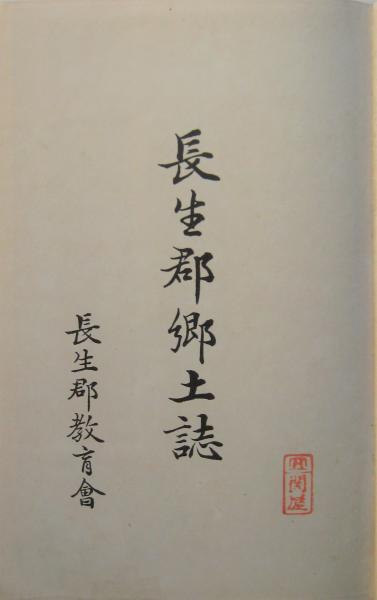 長生郡郷土誌
長生郡教育會